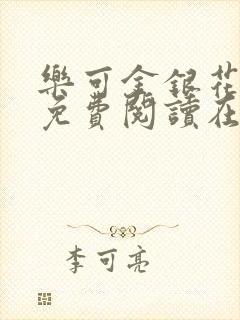 樂可金銀花
免費閱讀在
李可亮